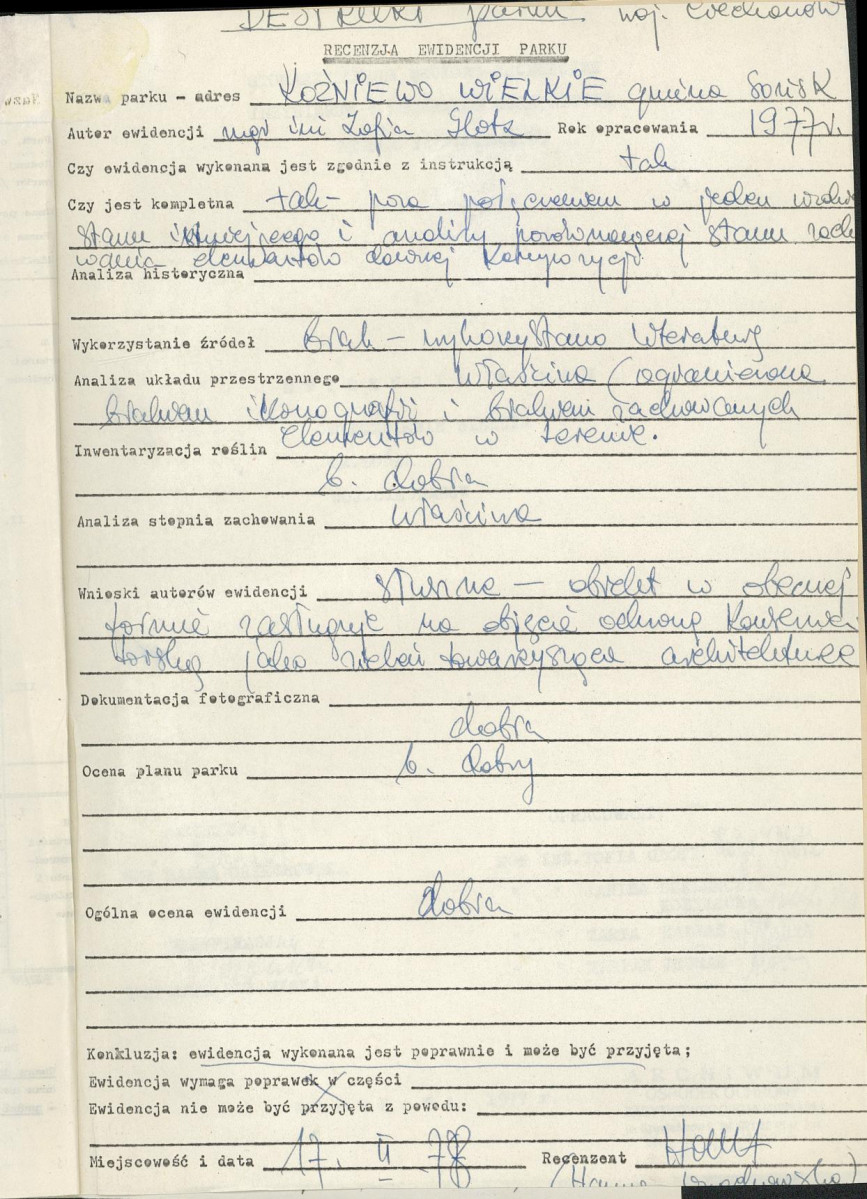 parku woj. Ciechanów
RECENZJA EWIDENCJI PARKU
Nazwa parku - adres KOŹNIEWO WIELKIE gmina Sońsk
Autor ewidencji mgr inż Zofia Rok opracowania 1977r.
Czy ewidencja wykonana jest zgodnie z instrukcją tak
Czy jest kompletna tak - poza połączeniem w jeden
stanu istniejącego i analizy porównawczej stanu zacho
wania elementów dawnej kompozycji
Analiza historyczna
Wykorzystanie źródeł brak - wykorzystano literaturę
Analiza układu przestrzennego właściwa (ograniczona
brakiem ikonografii i brakiem zachowanych
elementów w terenie.
Inwentaryzacja roślin
b. dobra
Analiza stopnia zachowania właściwa
Wnioski autorów ewidencji słuszne - obiekt w obecnej
formie zasługuje na objęcie ochroną konserwa
torską jako zieleń towarzysząca architekturze
Dokumentacja fotograficzna
dobra
Ocena planu parku b. dobry
Ogólna ocena ewidencji dobra
Konkluzja: ewidencja wykonana jest poprawnie i może być przyjęta;
Ewidencja wymaga poprawek w części
Ewidencja nie może być przyjęta z powodu:
Miejscowość i data 17. II - 78 Recenzent